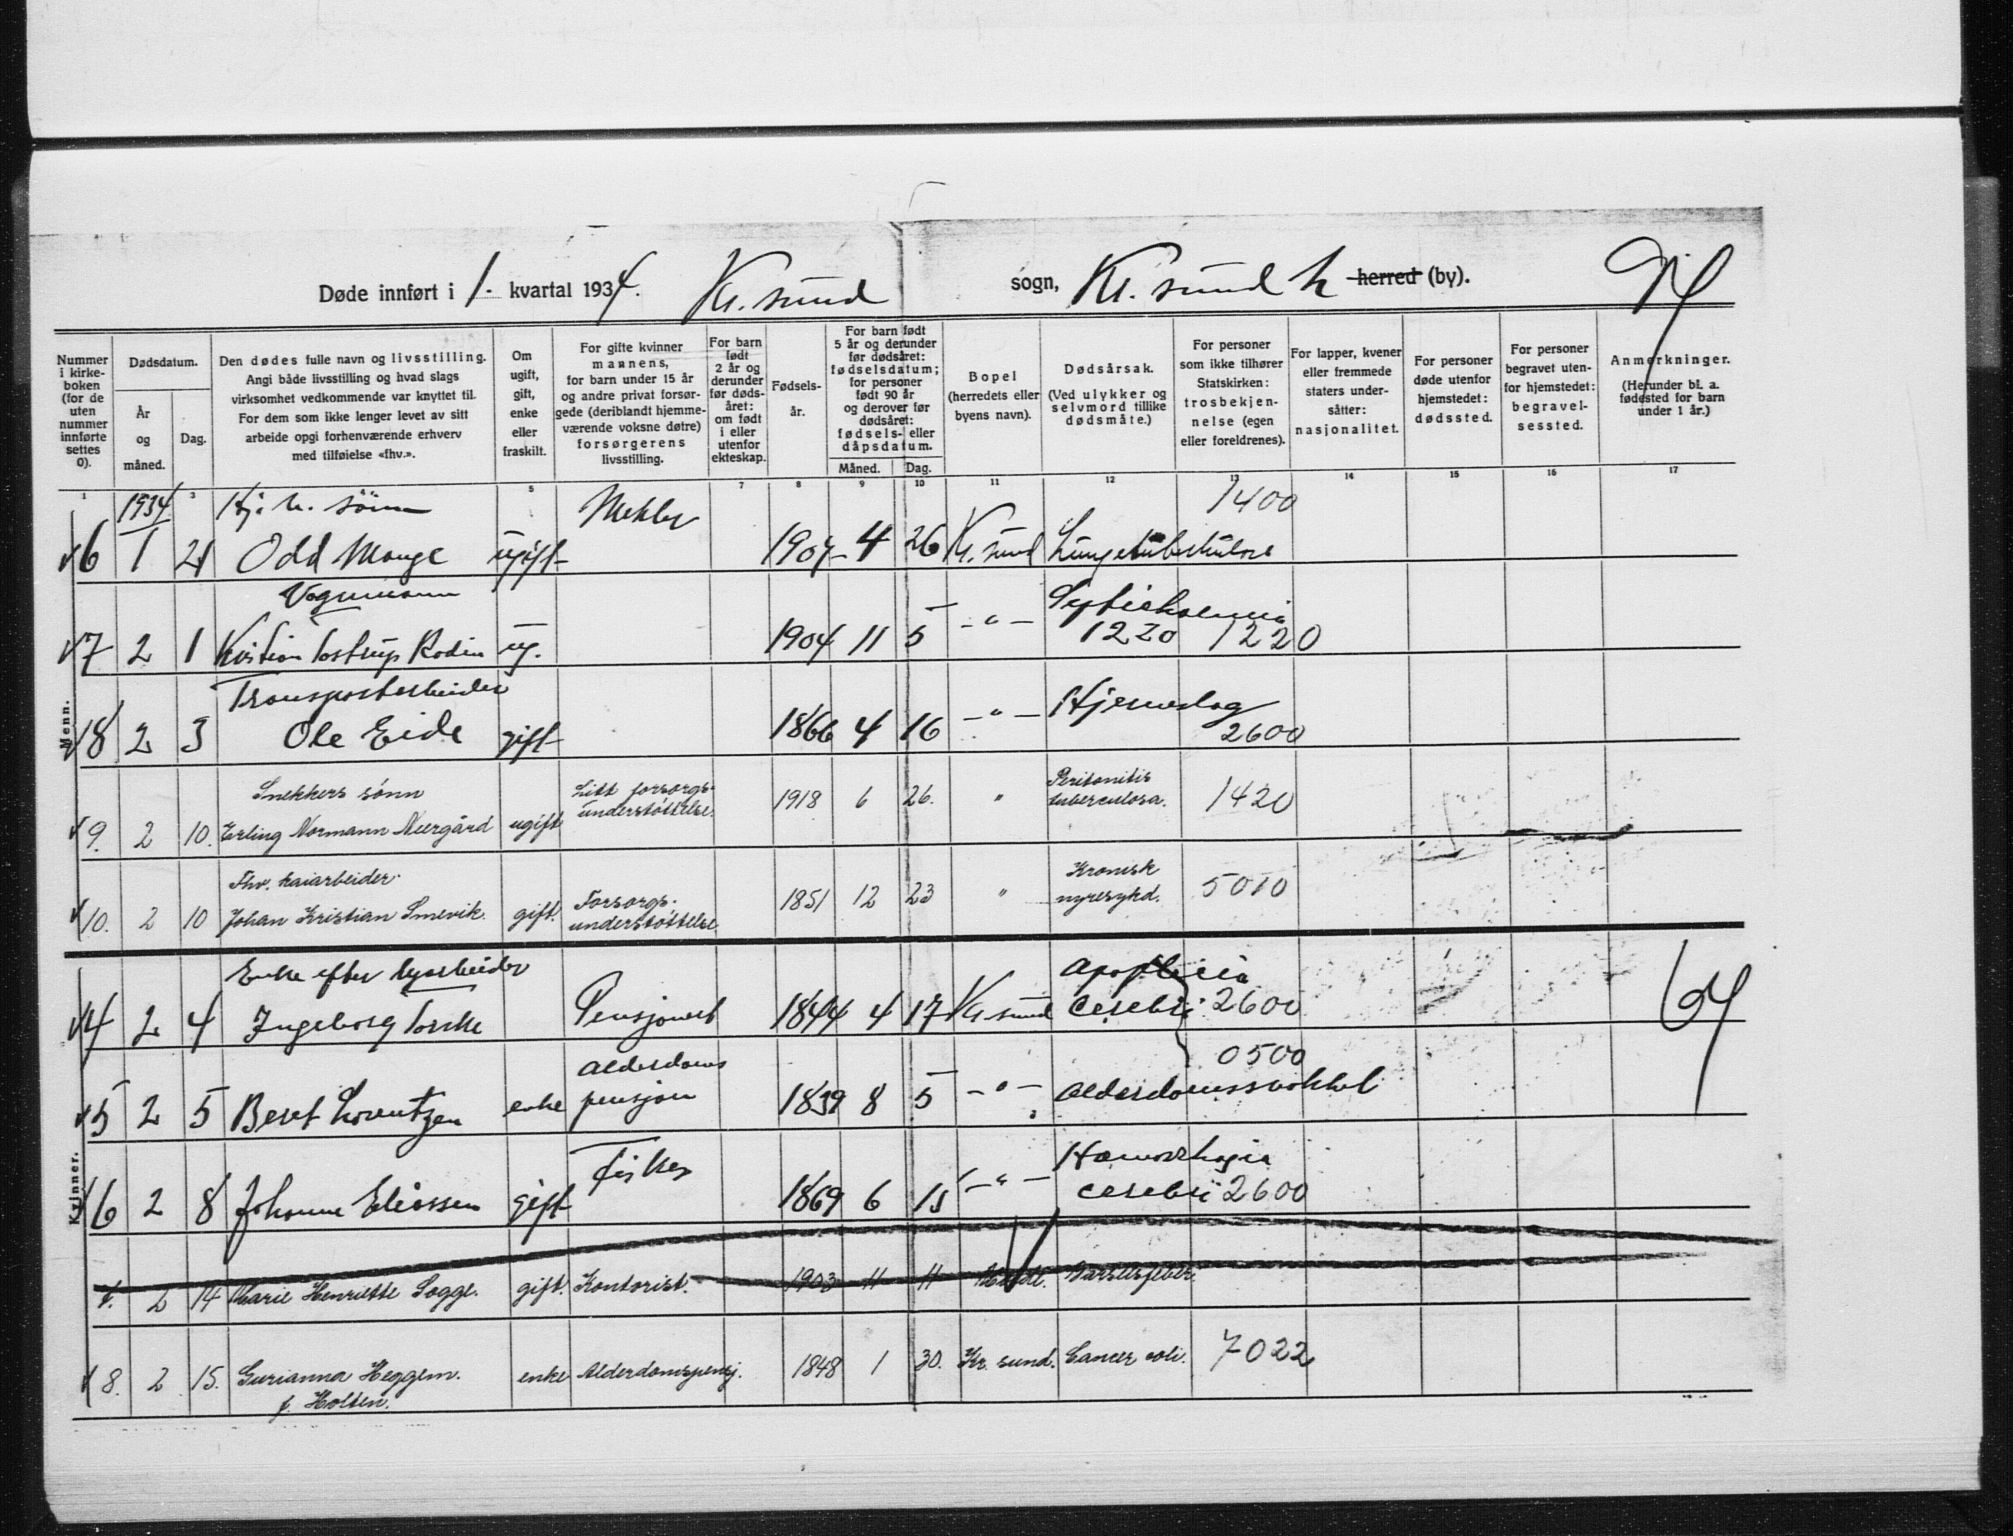 Døde innført i 1. kvartal 1934. Kr. sund sogn, Kr. sund h herred (by).
Nummer i kirke-boken (for de uten nummer innførte settes 0).
Dødsdatum.
År og måned.
Dag.
Den dødes fulle navn og livsstilling.
Angi både livsstilling og hvad slags
virksomhet vedkommende var knyttet til.
For dem som ikke lenger levet av sitt
arbeide opgi forhenværende erhverv
med tilføielse «fhv.».
Om
ugift,
gift,
enke
eller
fraskilt.
For gifte kvinner
mannens,
for barn under 15 år
og andre privat forsør-
gede (deriblandt hjemme-
værende voksne døtre)
forsørgerens
livsstilling.
For barn
født
2 år og
derunder
før døds-
året:
om født
i eller
utenfor
ekteskap.
Fødsels-
år.
For barn født
5 år og derunder
før dødsåret:
fødselsdatum;
for personer
født 90 år
og derover før
dødsåret:
fødsels- eller
dåpsdatum.
Måned. Dag.
Bopel
(herredets eller
byens navn).
Dødsårsak.
(Ved ulykker og
selvmord tillike
dødsmåte.)
For personer
som ikke tilhører
Statskirken:
trosbekjen-
nelse (egen
eller foreldrenes).
For lapper, kvener
eller fremmede
staters under-
såtter:
nasjonalitet.
For personer
døde utenfor
hjemstedet:
dødssted.
For personer
begravet uten-
for hjemstedet:
begravel-
sessted.
Anmerkninger.
(Herunder bl. a.
fødested for barn
under 1 år.)
1 3 5 7 8 9 10 11 12 13 14 15 16 17
Menn.
1934 1400
6 1 Odd ugift 4 26 Kr. sund Lungetuberkulose
Vognmann
7 2 1 Rodin ug. 1904 11 5 - " - 1220 1220
Transportarbeider
8 2 3 Ole Eide gift 1866 4 16 - " - Hjerneslag 2600
Snekkers sønn Litt forsorgs- Peritonitis
9. 2 10. Erling Normann Neergård ugift understøttelse. 1918 6 26. " tuberculosa. 1420
Fhv. kaiarbeider. Kronisk
10. 2 10 Johan Kristian Smevik. gift. Forsorgs- understøttelse 1851 12 23 " nyresykd. 5010
Kvinner.
Enke efter Apoplexia
4 2 4 Ingeborg Pensjonert 1844 4 17 Kr. sund cerebri 2600
Alderdoms 0500
5 2 5 Beret Lorentzen enke pensjon 1839 8 5 - " - Alderdomssvakhet
Fisker Hæmorrhagia
6 2 8 Johanne Eliassen gift 1869 6 15 - " - cerebri 2600
2 14 Marie Henriette Sogge. gift. Kontorist. 1903 11 11 Barselfeber.
8. 2 15. Gurianna Heggem. enke Alderdomspensj. 1848 1 30. Kr. sund. Cancer coli. 7022
f. Holten.